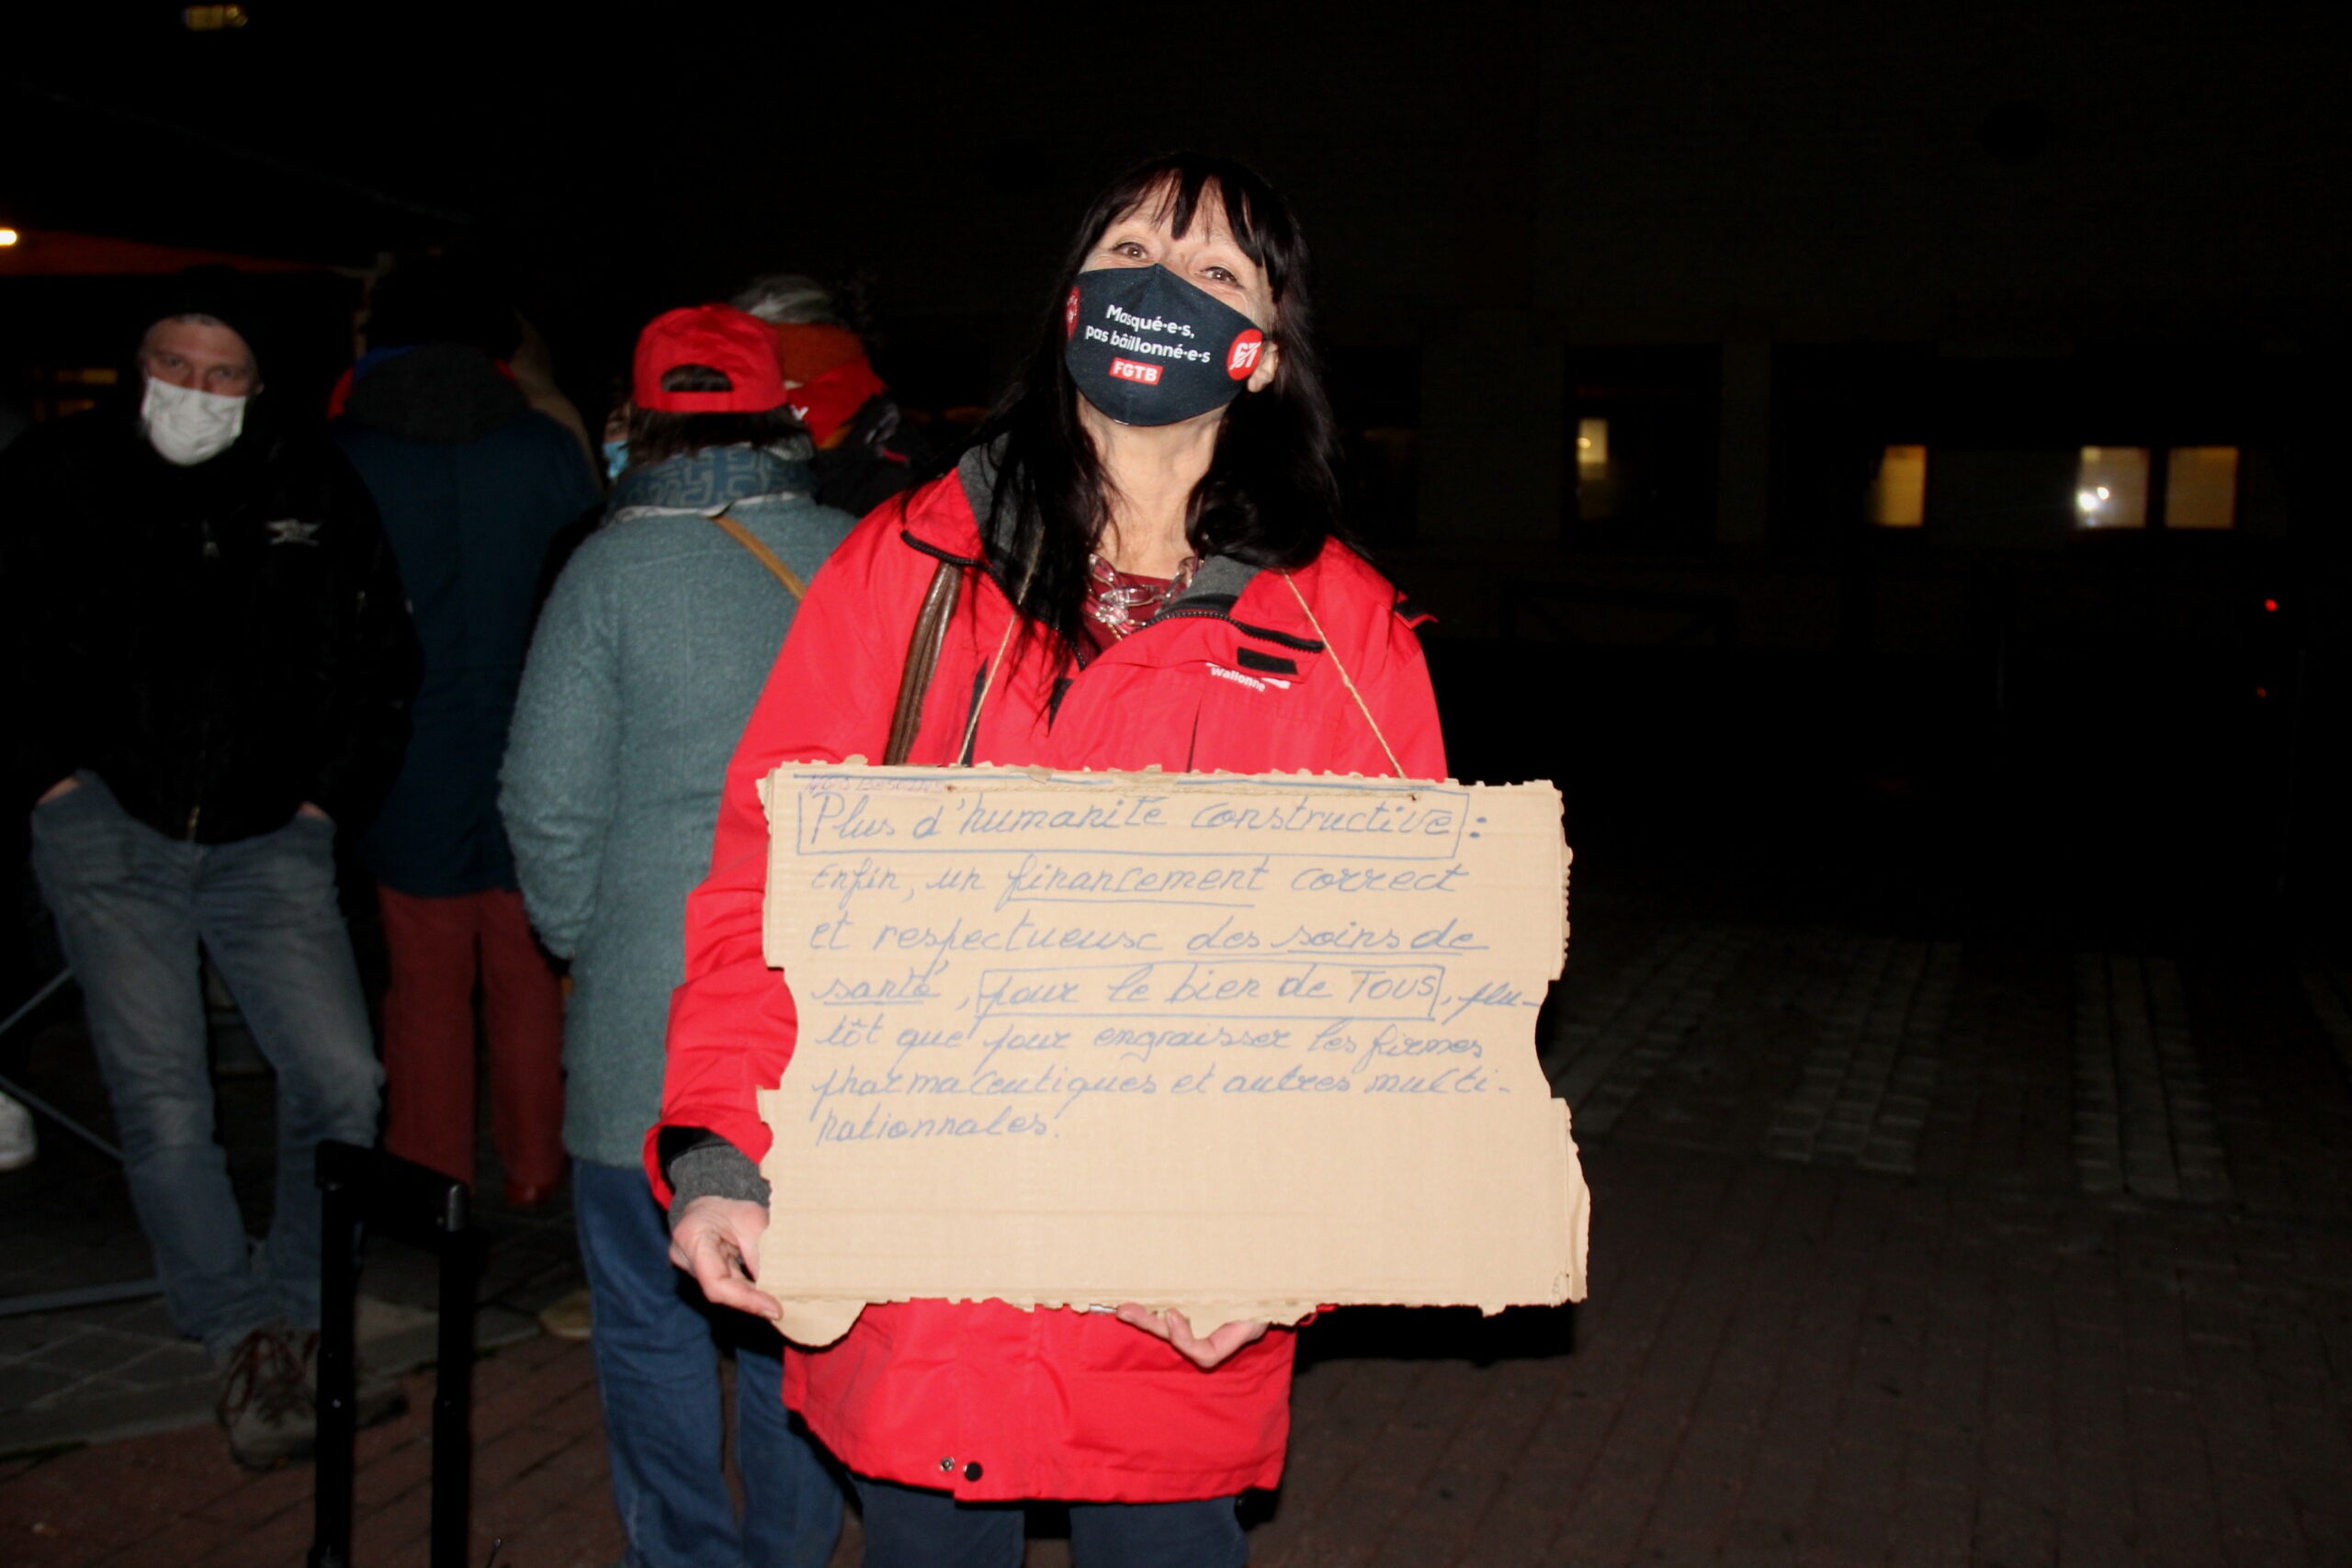 Masqué·e·s,
pas bâillonné·e·s
FGTB
Wallonne
Plus d'humanité constructive :
Enfin, un financement correct
et respectueux des soins de
santé, pour le bien de TOUS, plu-
tôt que pour engraisser les firmes
pharmaceutiques et autres multi-
nationnales.